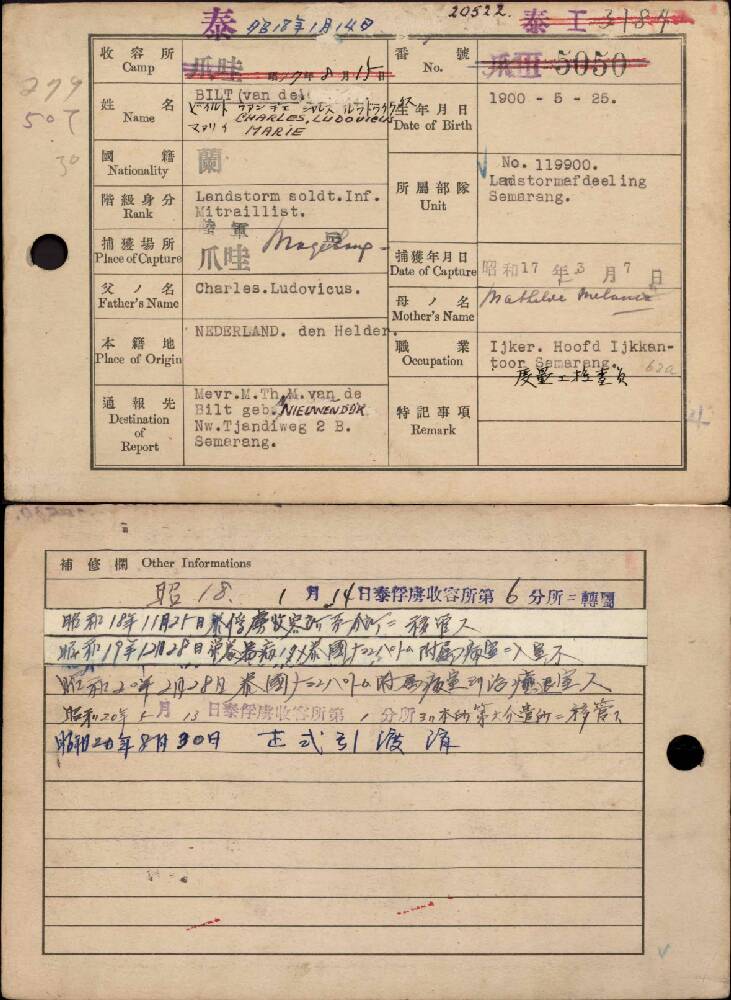 泰 昭18年1月14日 20522. 泰工 3184
收容所 Camp 爪哇 昭17年8月15
番號 No. 爪 5050
279
507
30
姓名 Name BILT (van de)
ビイルト ヴアンデエ シヤルス
CHARLES, LUDOVICUS
マアリイ MARIE
生年月日 Date of Birth 1900 - 5 - 25.
國籍 Nationality 蘭
所屬部隊 Unit No. 119900.
Landstormafdeeling
Semarang.
階級身分 Rank Landstorm soldt.Inf.
Mitraillist.
陸軍
捕獲場所 Place of Capture 爪哇 Magelang
捕獲年月日 Date of Capture 昭和17年3月7日
父ノ名 Father's Name Charles.Ludovicus.
母ノ名 Mother's Name Mathilde Melania
本籍地 Place of Origin NEDERLAND. den Helder.
職業 Occupation Ijker. Hoofd Ijkkan-
toor Semarang. 62a
度量工檢查員
通報先 Destination of Report Mevr.M.Th.M.van de
Bilt geb. NIEUWENDYK
Nw.Tjandiweg 2 B.
Semarang.
特記事項 Remark
補修欄 Other Informations
昭18. 1月14日泰俘虜收容所第6分所ニ轉屬
昭和18年11月25日泰俘虜收容所第 分所ニ移管ス
昭和19年12月28日 泰國ナコンパトム附屬病室ニ入室ス
昭和20年2月28日泰國ナコンパトム附属病室ヨリ治癒退室ス
昭和20年 月13日泰俘虜收容所第1分所ヨリ本所第 分遣所ニ移管ス
昭和20年8月30日 正式引渡濟